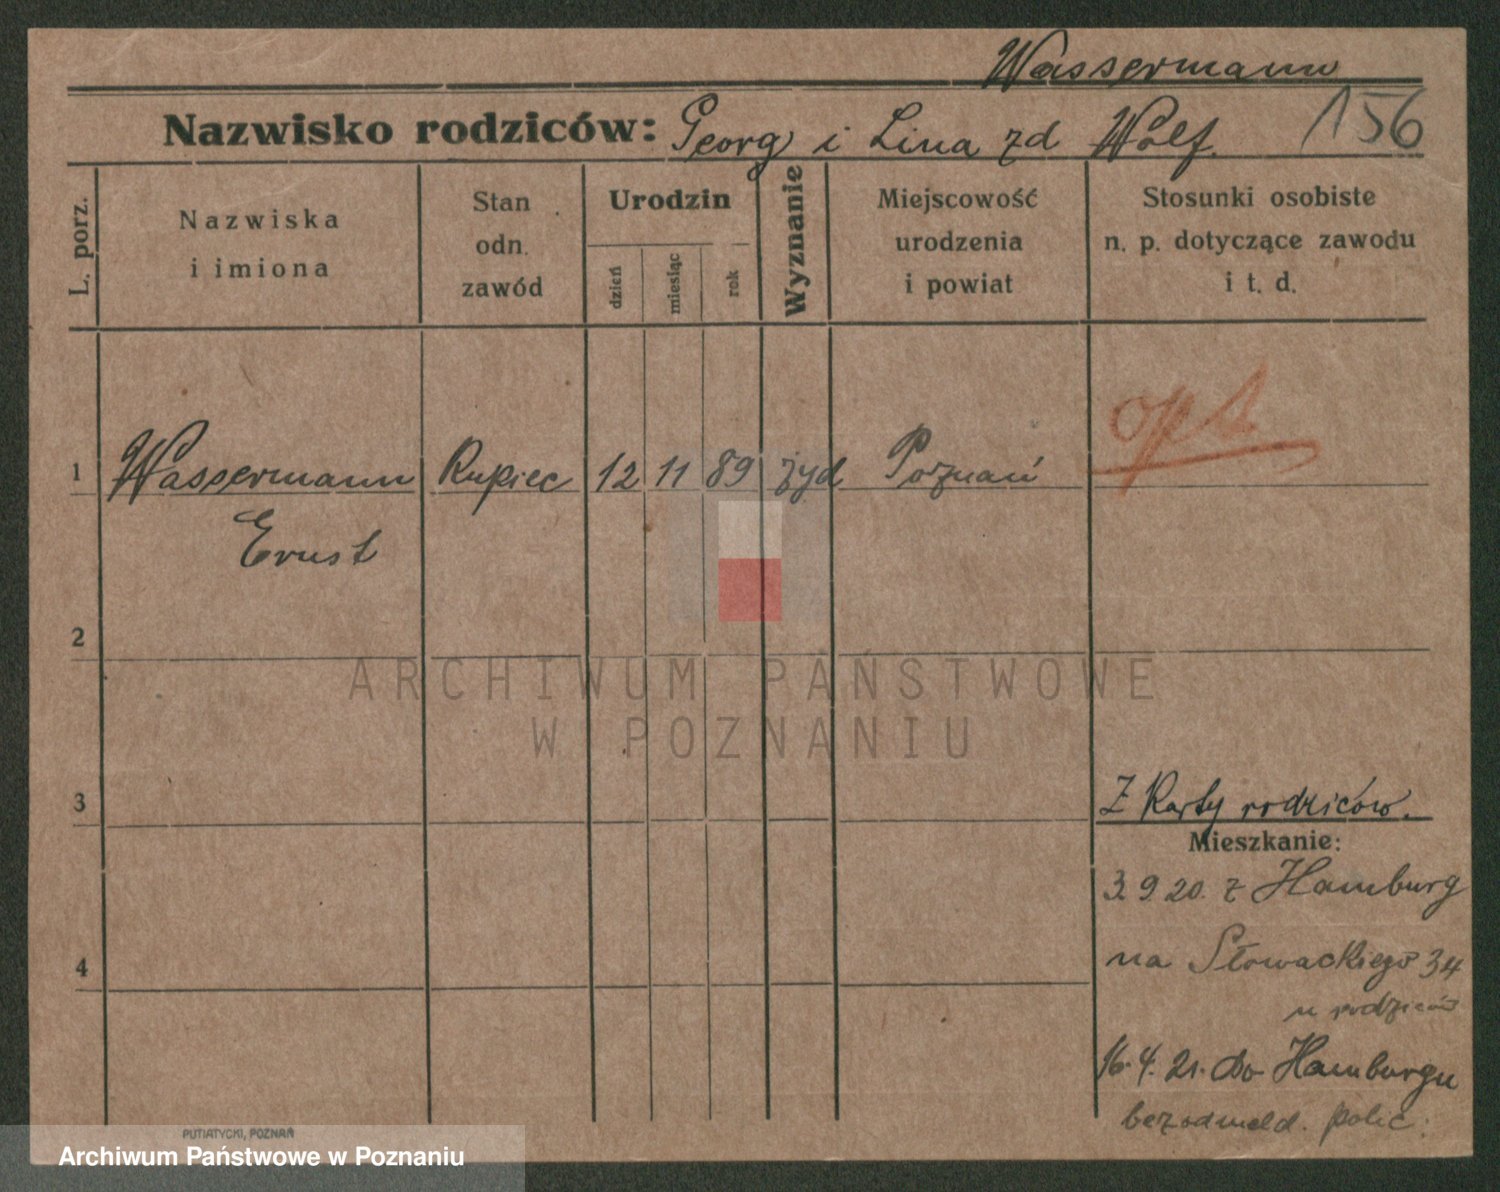 Wassermann
Nazwisko rodziców: Georg i Lina zd Wolf. 156
L. porz.
Nazwiska
i imiona
Stan
odn.
zawód
Urodzin
dzień
miesiąc
rok
Wyznanie
Miejscowość
urodzenia
i powiat
Stosunki osobiste
n. p. dotyczące zawodu
i t. d.
opt.
1 Wassermann Kupiec 12 11 89 żyd Poznań
Ernst
2
ARCHIWUM PAŃSTWOWE
W POZNANIU
3
Z Karty rodziców.
Mieszkanie:
3.9.20. z Hamburg
na Słowackiego 34
4
u rodziców
16.4.21. do Hamburgu
bez odmeld. polic.
PUTIATYCKI, POZNAŃ
Archiwum Państwowe w Poznaniu